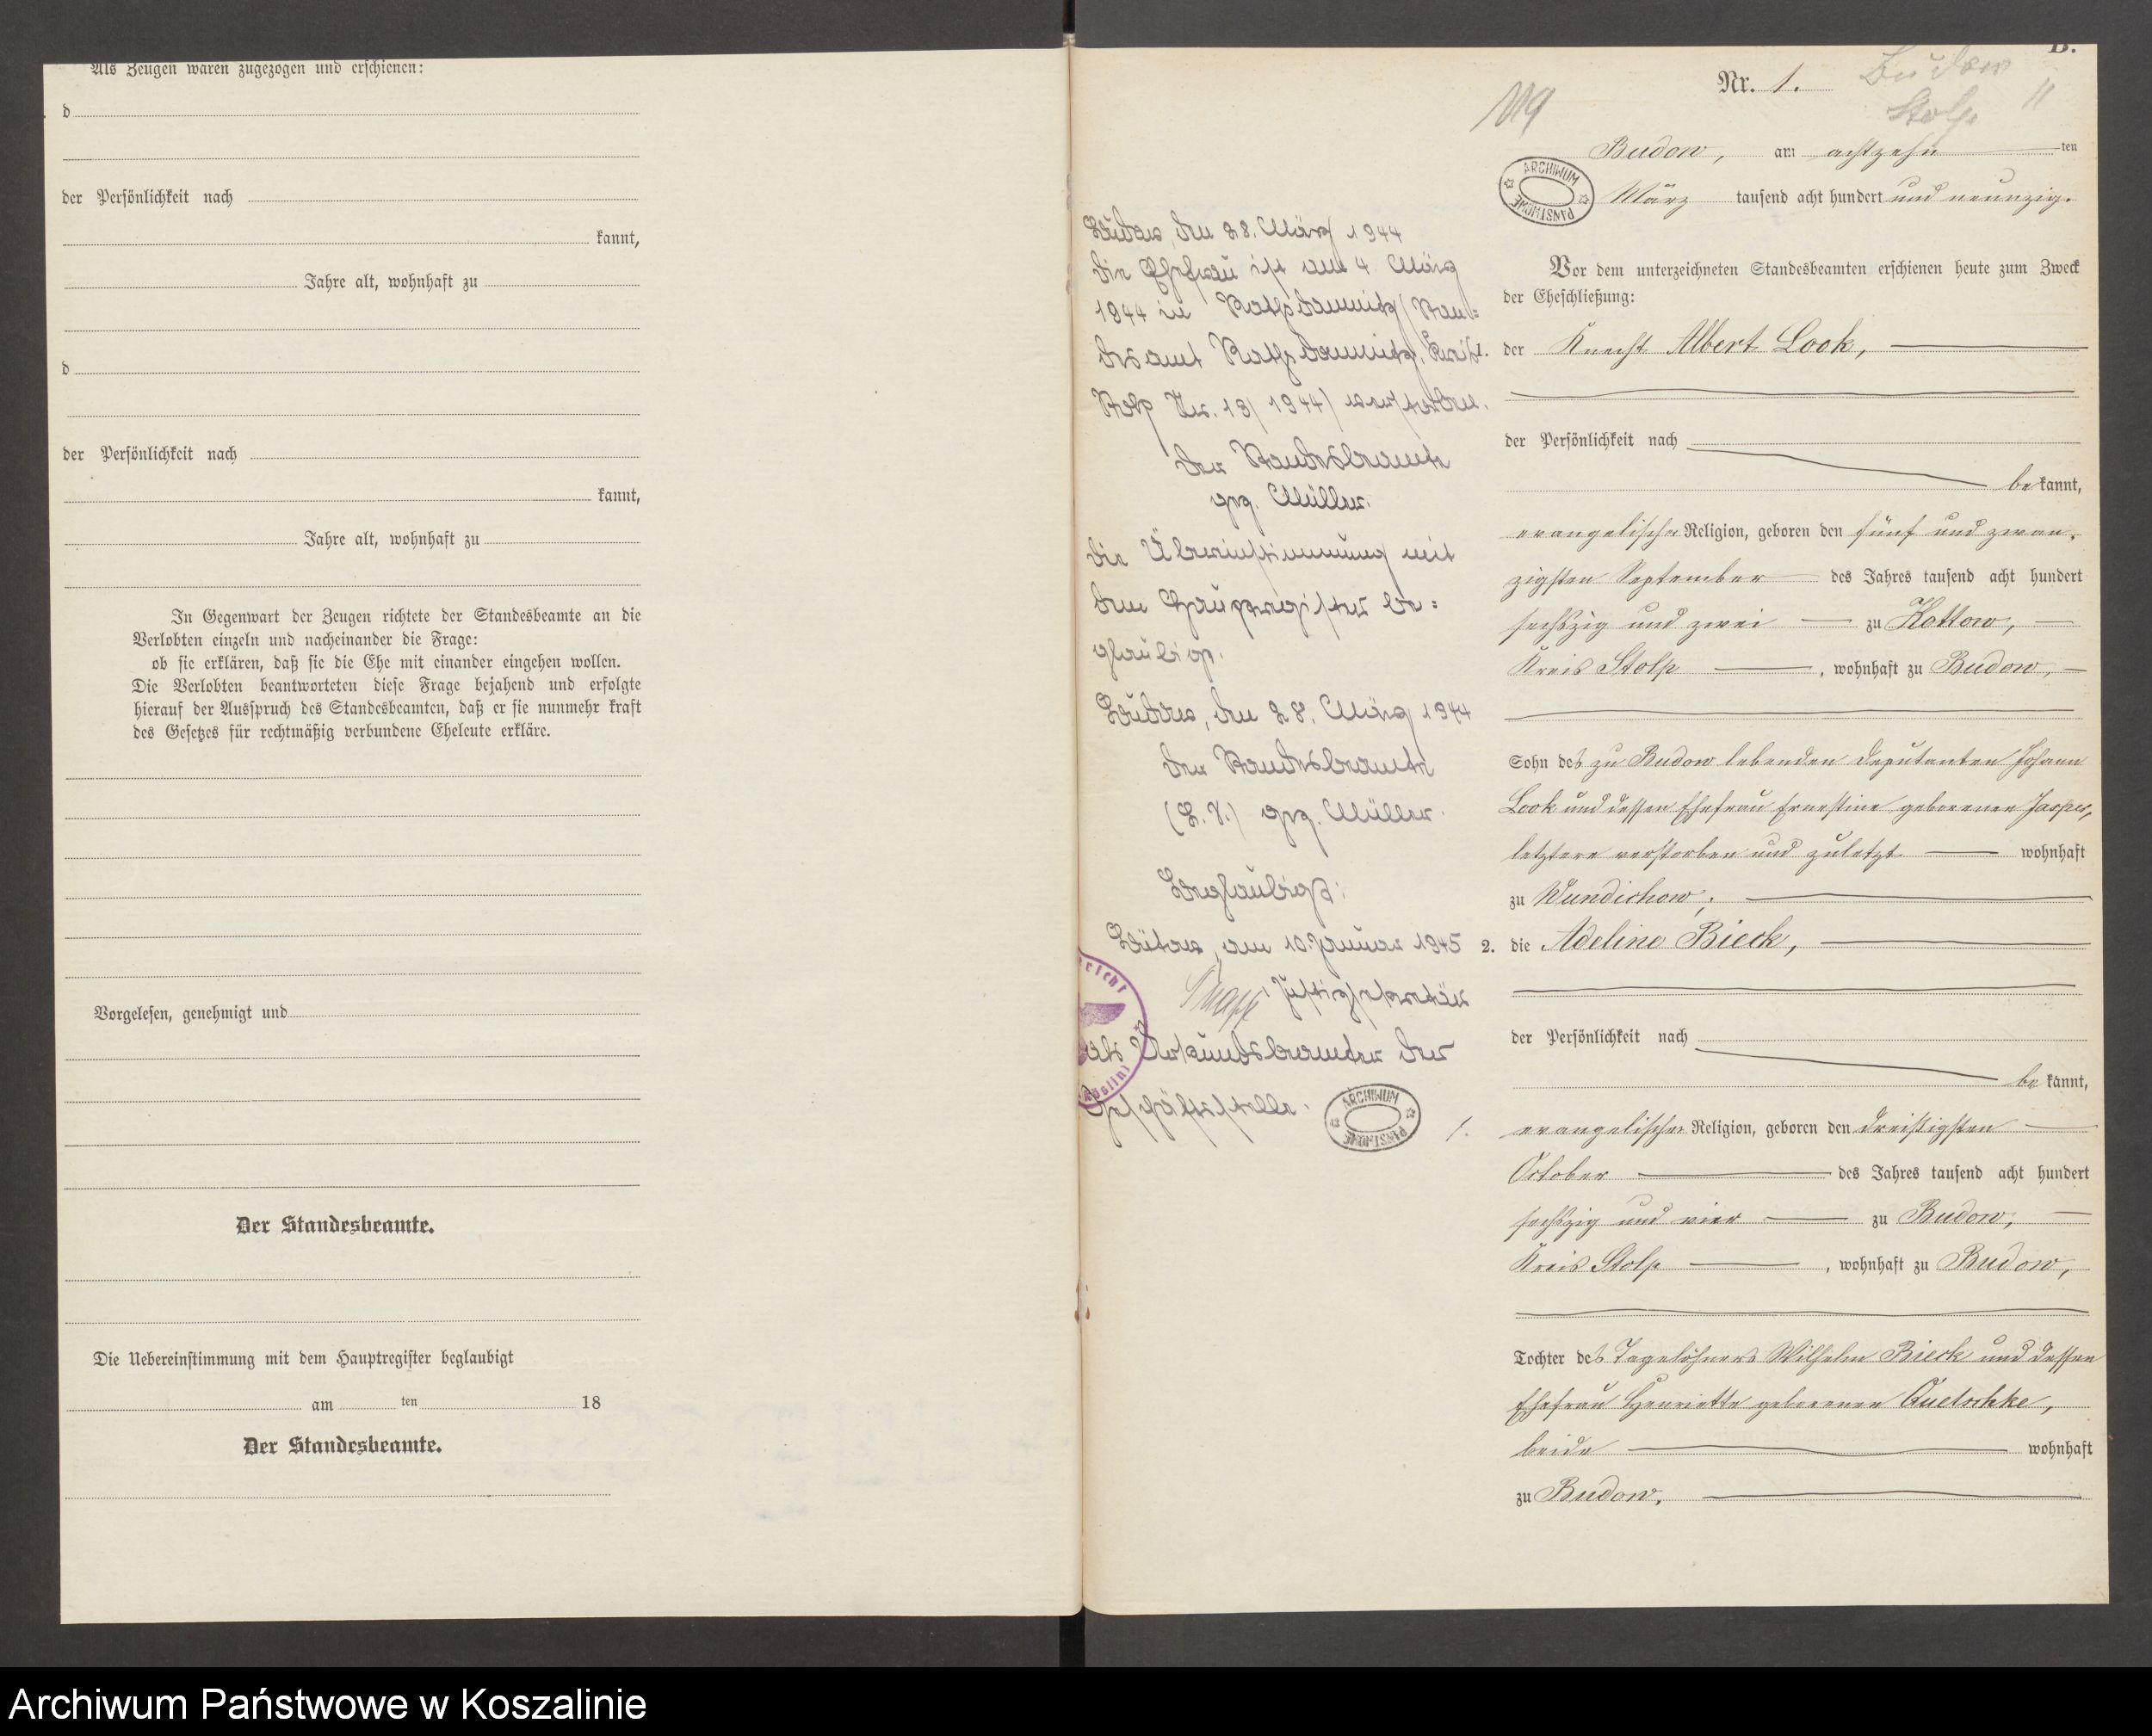 Als Zeugen waren zugezogen und erschienen:
d
der Persönlichkeit nach
kannt,
Jahre alt, wohnhaft zu
d
der Persönlichkeit nach
kannt,
Jahre alt, wohnhaft zu
In Gegenwart der Zeugen richtete der Standesbeamte an die
Verlobten einzeln und nacheinander die Frage:
ob sie erklären, daß sie die Ehe mit einander eingehen wollen.
Die Verlobten beantworteten diese Frage bejahend und erfolgte
hierauf der Ausspruch des Standesbeamten, daß er sie nunmehr kraft
des Gesetzes für rechtmäßig verbundene Eheleute erkläre.
Vorgelesen, genehmigt und
Der Standesbeamte.
Die Uebereinstimmung mit dem Hauptregister beglaubigt
am ten 18
Der Standesbeamte.
B.
Nr. 1.
Budow
Stolp 11
119
Budow, am achtzehn ten
März tausend acht hundert und neunzig.
ARCHIWUM PAŃSTWOWE
Vor dem unterzeichneten Standesbeamten erschienen heute zum Zweck
der Eheschließung:
1. der Knecht Albert Look,
der Persönlichkeit nach
be kannt,
evangelischer Religion, geboren den fünf und zwan-
zigsten September des Jahres tausend acht hundert
sechszig und zwei zu Kottow,
Kreis Stolp, wohnhaft zu Budow,
Sohn des zu Budow lebenden Deputanten Johann
Look und dessen Ehefrau Ernestine geborenen Jasper,
letztere verstorben und zuletzt wohnhaft
zu Wundichow;
2. die Adeline Bieck,
der Persönlichkeit nach
be kannt,
evangelischer Religion, geboren den dreißigsten
October des Jahres tausend acht hundert
sechszig und vier zu Budow,
Kreis Stolp, wohnhaft zu Budow,
Tochter des Tagelöhners Wilhelm Bieck und dessen
Ehefrau Henriette geborenen Quetschke,
beide wohnhaft
zu Budow.
Budow, den 28. März 1944
Die Ehefrau ist am 4. März
1944 in Rathsdamnitz (Stan=
desamt Rathsdamnitz, Kreis
Stolp Nr. 13/1944) verstorben.
Der Standesbeamte
gez. Müller.
Die Übereinstimmung mit
dem Hauptregister be=
glaubigt.
Budow, den 28. März 1944
Der Standesbeamte
(L. S.) gez. Müller.
Beglaubigt:
Bütow, am 10. Januar 1945
Justizsekretär
als Urkundsbeamter der
Geschäftsstelle.
ARCHIWUM PAŃSTWOWE
1.
Archiwum Państwowe w Koszalinie